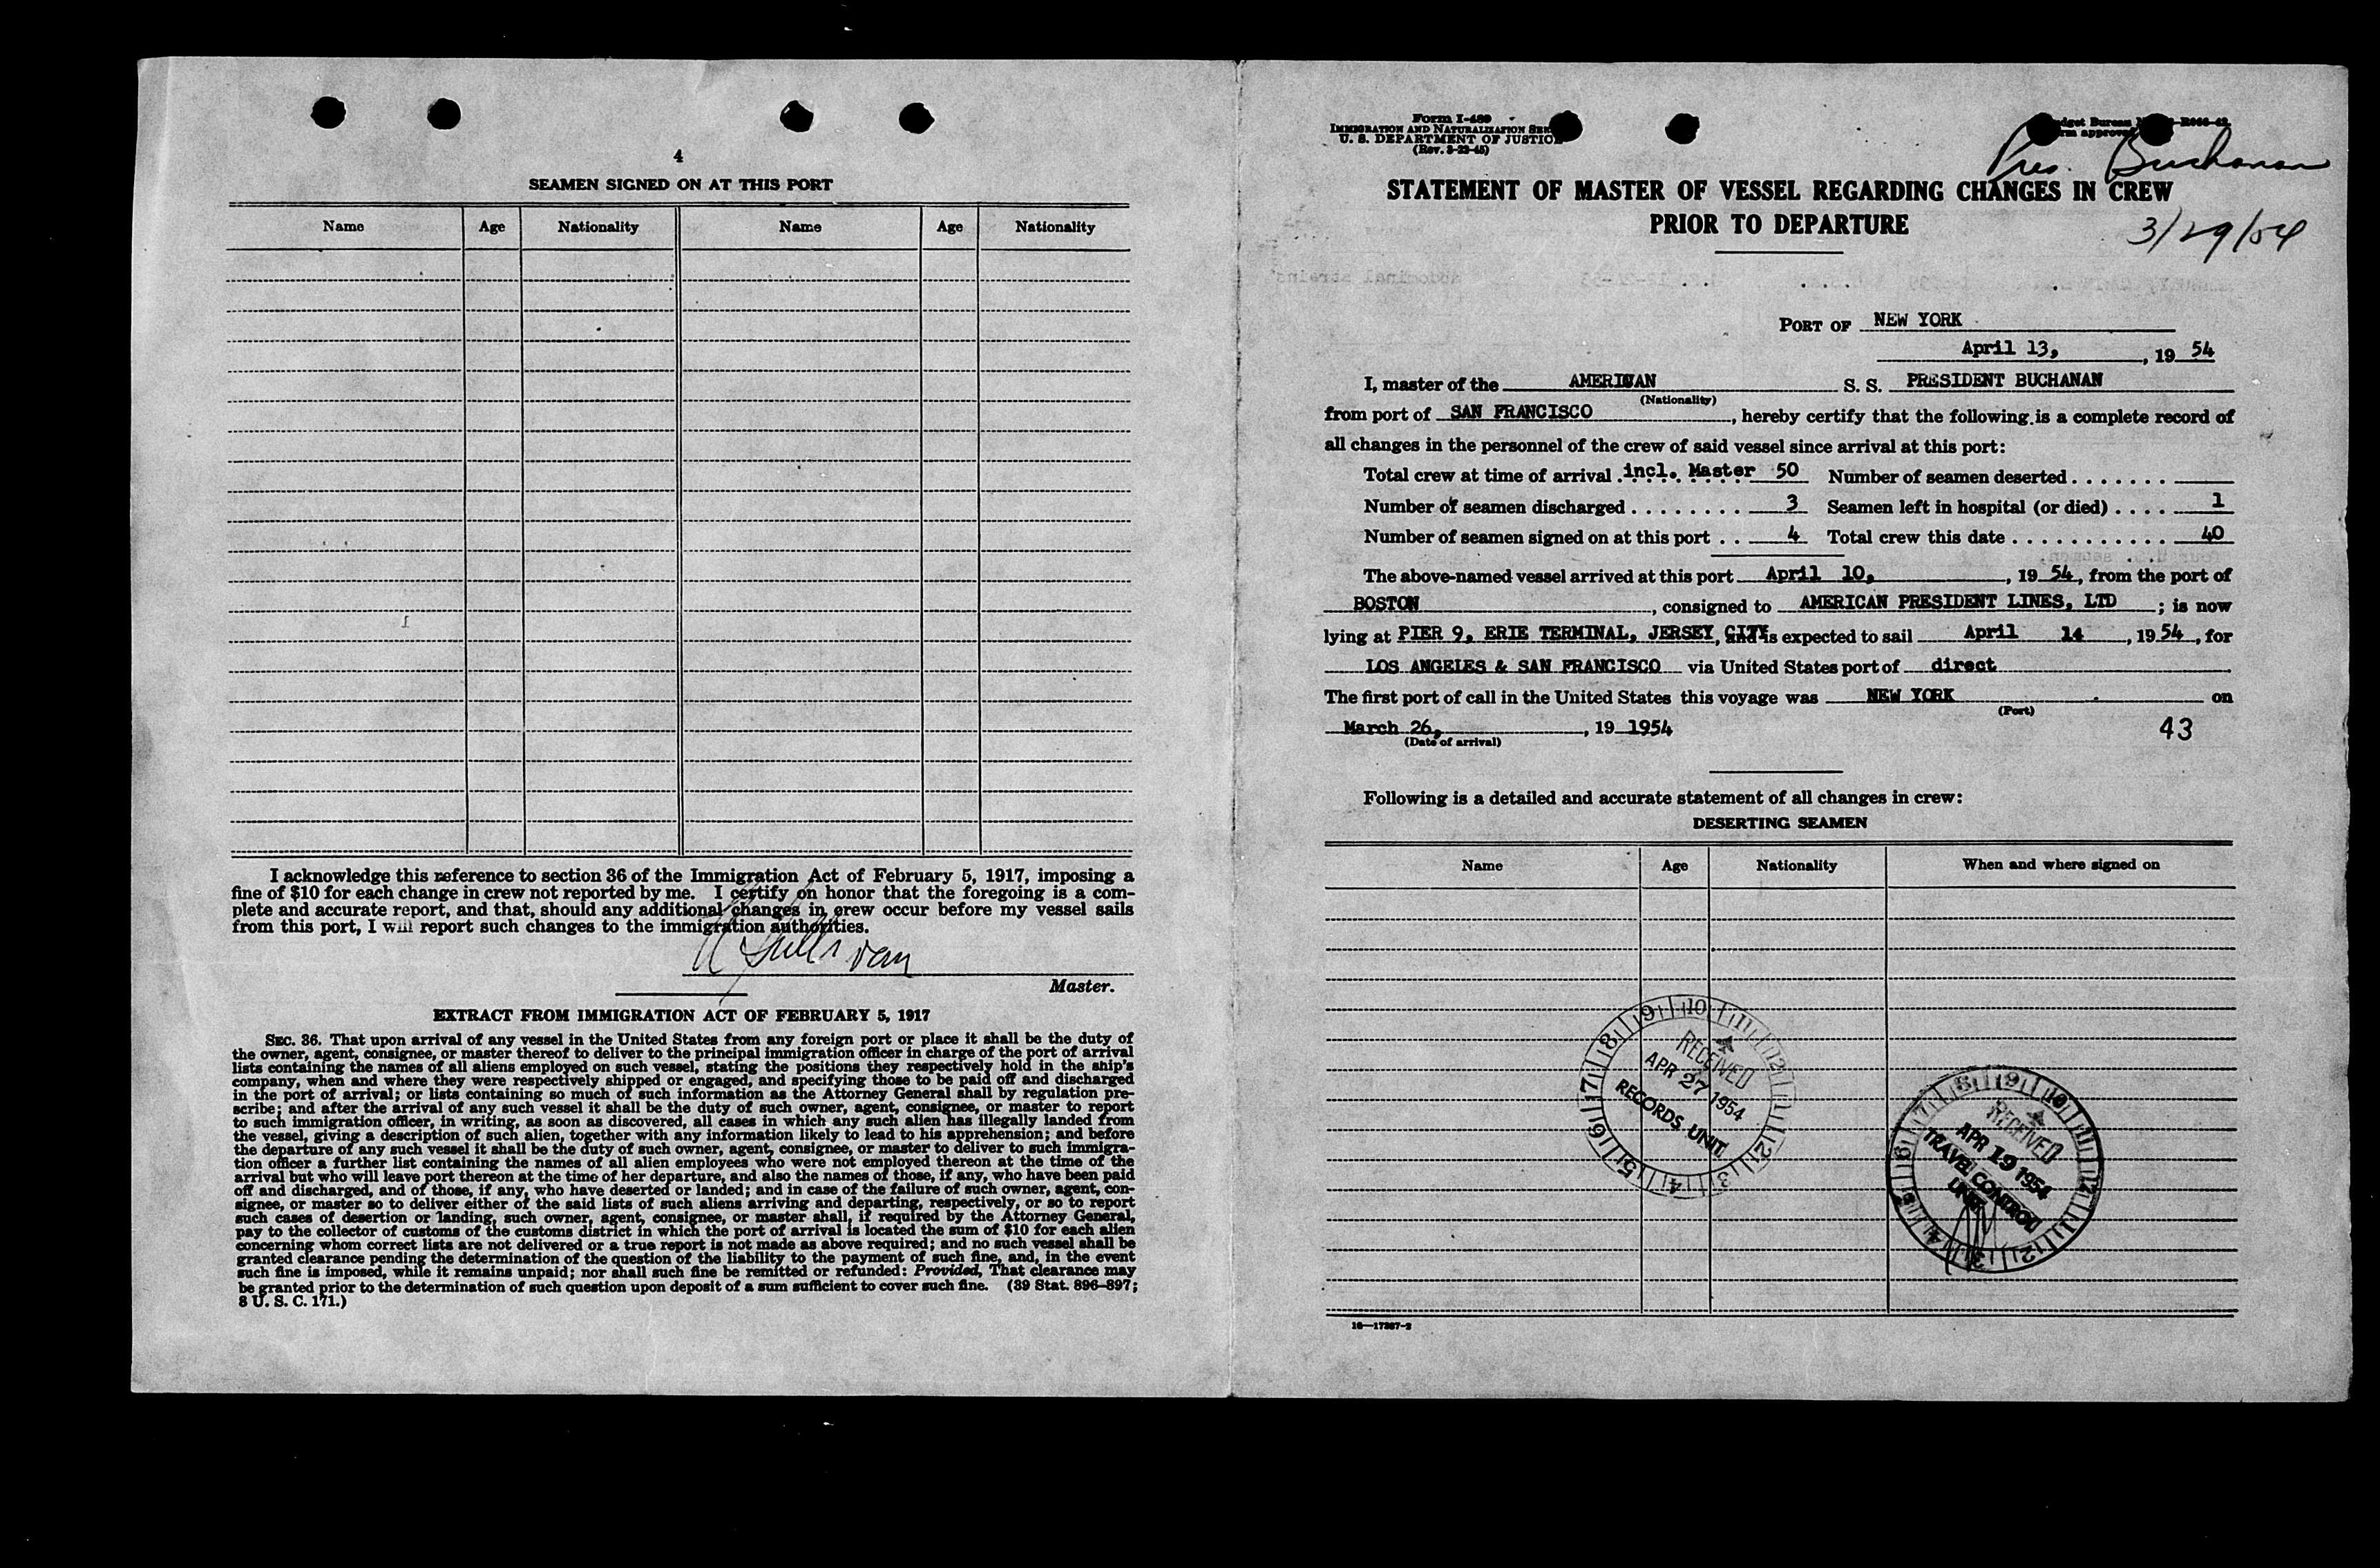 4
SEAMEN SIGNED ON AT THIS PORT
Name Age Nationality Name Age Nationality
I acknowledge this reference to section 36 of the Immigration Act of February 5, 1917, imposing a
fine of $10 for each change in crew not reported by me. I certify on honor that the foregoing is a com-
plete and accurate report, and that, should any additional changes in crew occur before my vessel sails
from this port, I will report such changes to the immigration authorities.
Sullivan
Master.
EXTRACT FROM IMMIGRATION ACT OF FEBRUARY 5, 1917
SEC. 36. That upon arrival of any vessel in the United States from any foreign port or place it shall be the duty of
the owner, agent, consignee, or master thereof to deliver to the principal immigration officer in charge of the port of arrival
lists containing the names of all aliens employed on such vessel, stating the positions they respectively hold in the ship's
company, when and where they were respectively shipped or engaged, and specifying those to be paid off and discharged
in the port of arrival; or lists containing so much of such information as the Attorney General shall by regulation pre-
scribe; and after the arrival of any such vessel it shall be the duty of such owner, agent, consignee, or master to report
to such immigration officer, in writing, as soon as discovered, all cases in which any such alien has illegally landed from
the vessel, giving a description of such alien, together with any information likely to lead to his apprehension; and before
the departure of any such vessel it shall be the duty of such owner, agent, consignee, or master to deliver to such immigra-
tion officer a further list containing the names of all alien employees who were not employed thereon at the time of the
arrival but who will leave port thereon at the time of her departure, and also the names of those, if any, who have been paid
off and discharged, and of those, if any, who have deserted or landed; and in case of the failure of such owner, agent, con-
signee, or master so to deliver either of the said lists of such aliens arriving and departing, respectively, or so to report
such cases of desertion or landing, such owner, agent, consignee, or master shall, if required by the Attorney General,
pay to the collector of customs of the customs district in which the port of arrival is located the sum of $10 for each alien
concerning whom correct lists are not delivered or a true report is not made as above required; and no such vessel shall be
granted clearance pending the determination of the question of the liability to the payment of such fine, and, in the event
such fine is imposed, while it remains unpaid; nor shall such fine be remitted or refunded: Provided, That clearance may
be granted prior to the determination of such question upon deposit of a sum sufficient to cover such fine. (39 Stat. 896–897;
8 U. S. C. 171.)
Form I-489
IMMIGRATION AND NATURALIZATION SER
U. S. DEPARTMENT OF JUSTICE
(Rev. 3-22-45)
dget Bureau
rm approve
Pres. Buchanan
STATEMENT OF MASTER OF VESSEL REGARDING CHANGES IN CREW
PRIOR TO DEPARTURE
3/29/54
PORT OF NEW YORK
April 13, , 19 54
I, master of the AMERICAN S. S. PRESIDENT BUCHANAN
(Nationality)
from port of SAN FRANCISCO , hereby certify that the following is a complete record of
all changes in the personnel of the crew of said vessel since arrival at this port:
Total crew at time of arrival incl. Master 50 Number of seamen deserted
Number of seamen discharged 3 Seamen left in hospital (or died) 1
Number of seamen signed on at this port 4 Total crew this date 40
The above-named vessel arrived at this port April 10, , 19 54, from the port of
BOSTON , consigned to AMERICAN PRESIDENT LINES, LTD ; is now
lying at PIER 9, ERIE TERMINAL, JERSEY CITY, and is expected to sail April 14 , 19 54, for
LOS ANGELES & SAN FRANCISCO via United States port of direct
The first port of call in the United States this voyage was NEW YORK on
(Port)
March 26, , 19 1954 43
(Date of arrival)
Following is a detailed and accurate statement of all changes in crew:
DESERTING SEAMEN
Name Age Nationality When and where signed on
RECEIVED
APR 27 1954
RECORDS UNIT
RECEIVED
APR 19 1954
TRAVEL CONTROL
UNIT
16—17387-2